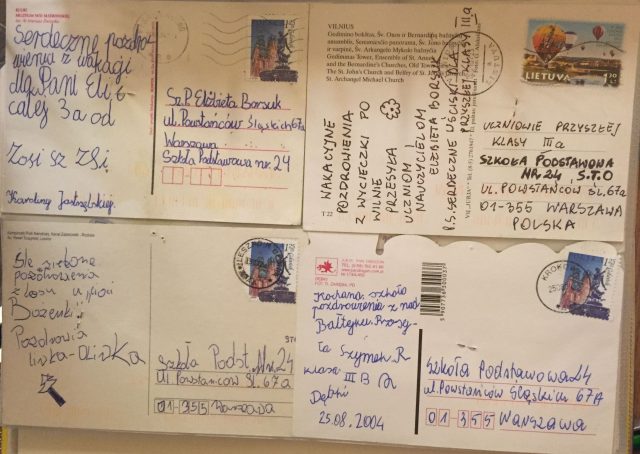 KLUKI
MUZEUM WSI SŁOWIŃSKIEJ
Serdeczne pozdro-
wienia z wakacji
dla Pani Eli i
całej 3a od
Zosi
Karoliny Jastrzębskiej.
Sz.P. Elżbieta Borsuk
ul. Powstańców Śląskich 67a
Warszawa
Szkoła Podstawowa nr. 24
VILNIUS
Gedimino bokštas, Šv. Onos ir Bernardinų bažnyčių
ansamblis, Senamiesčio panorama, Šv. Jono bažnyčia
ir varpinė, Šv. Arkangelo Mykolo bažnyčia
Gediminas Tower, Ensemble of St. Anne's
and the Bernardine's Churches, Old Town
The St. John's Church and Belfry of St. John's
St. Archangel Michael Church
WAKACYJNE
POZDROWIENIA
Z WYCIECZKI PO
WILNIE
PRZESYŁA
UCZNIOM I
NAUCZYCIELOM
ELŻBIETA BORSUK
P.S. SERDECZNE UŚCISKI DLA
PRZYSZŁEJ KLASY IIIa
T 22
LIETUVA
UCZNIOWIE PRZYSZŁEJ
KLASY IIIa
SZKOŁA PODSTAWOWA
NR. 24 S.T.O
UL. POWSTAŃCÓW ŚL. 67a
01-355 WARSZAWA
POLSKA
pozdrowienia
z lasu
Bożenki
Pozdrowia
OLIWKA
Szkoła Podst. Nr. 24
Ul. Powstańców Śl. 67a
01-355 Warszawa
Kochana szkoło
pozdrowienia z nad
Bałtyku. Przesy-
ła Szymek R
klasa III B
Dębki
25.08.2004
SZKOŁA PODSTAWOWA 24
ul. Powstańców Śląskich 67A
01-355 WARSZAWA